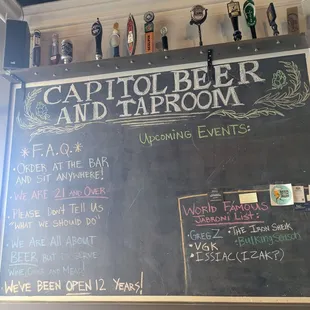 CAPITOL BEER
AND TAPROOM
UPCOMING EVENTS:
* F.A.Q. *
• ORDER AT THE BAR
AND SIT ANYWHERE!
• WE ARE 21 AND OVER
• PLEASE DON'T TELL US
"WHAT WE SHOULD DO"
• WE ARE ALL ABOUT
BEER BUT
WE'VE BEEN OPEN 12 YEARS!
WORLD FAMOUS
JABRONI LIST:
• GREG Z
• THE IRON SHEIK
• VGK
• ISSIAC (IZAK?)